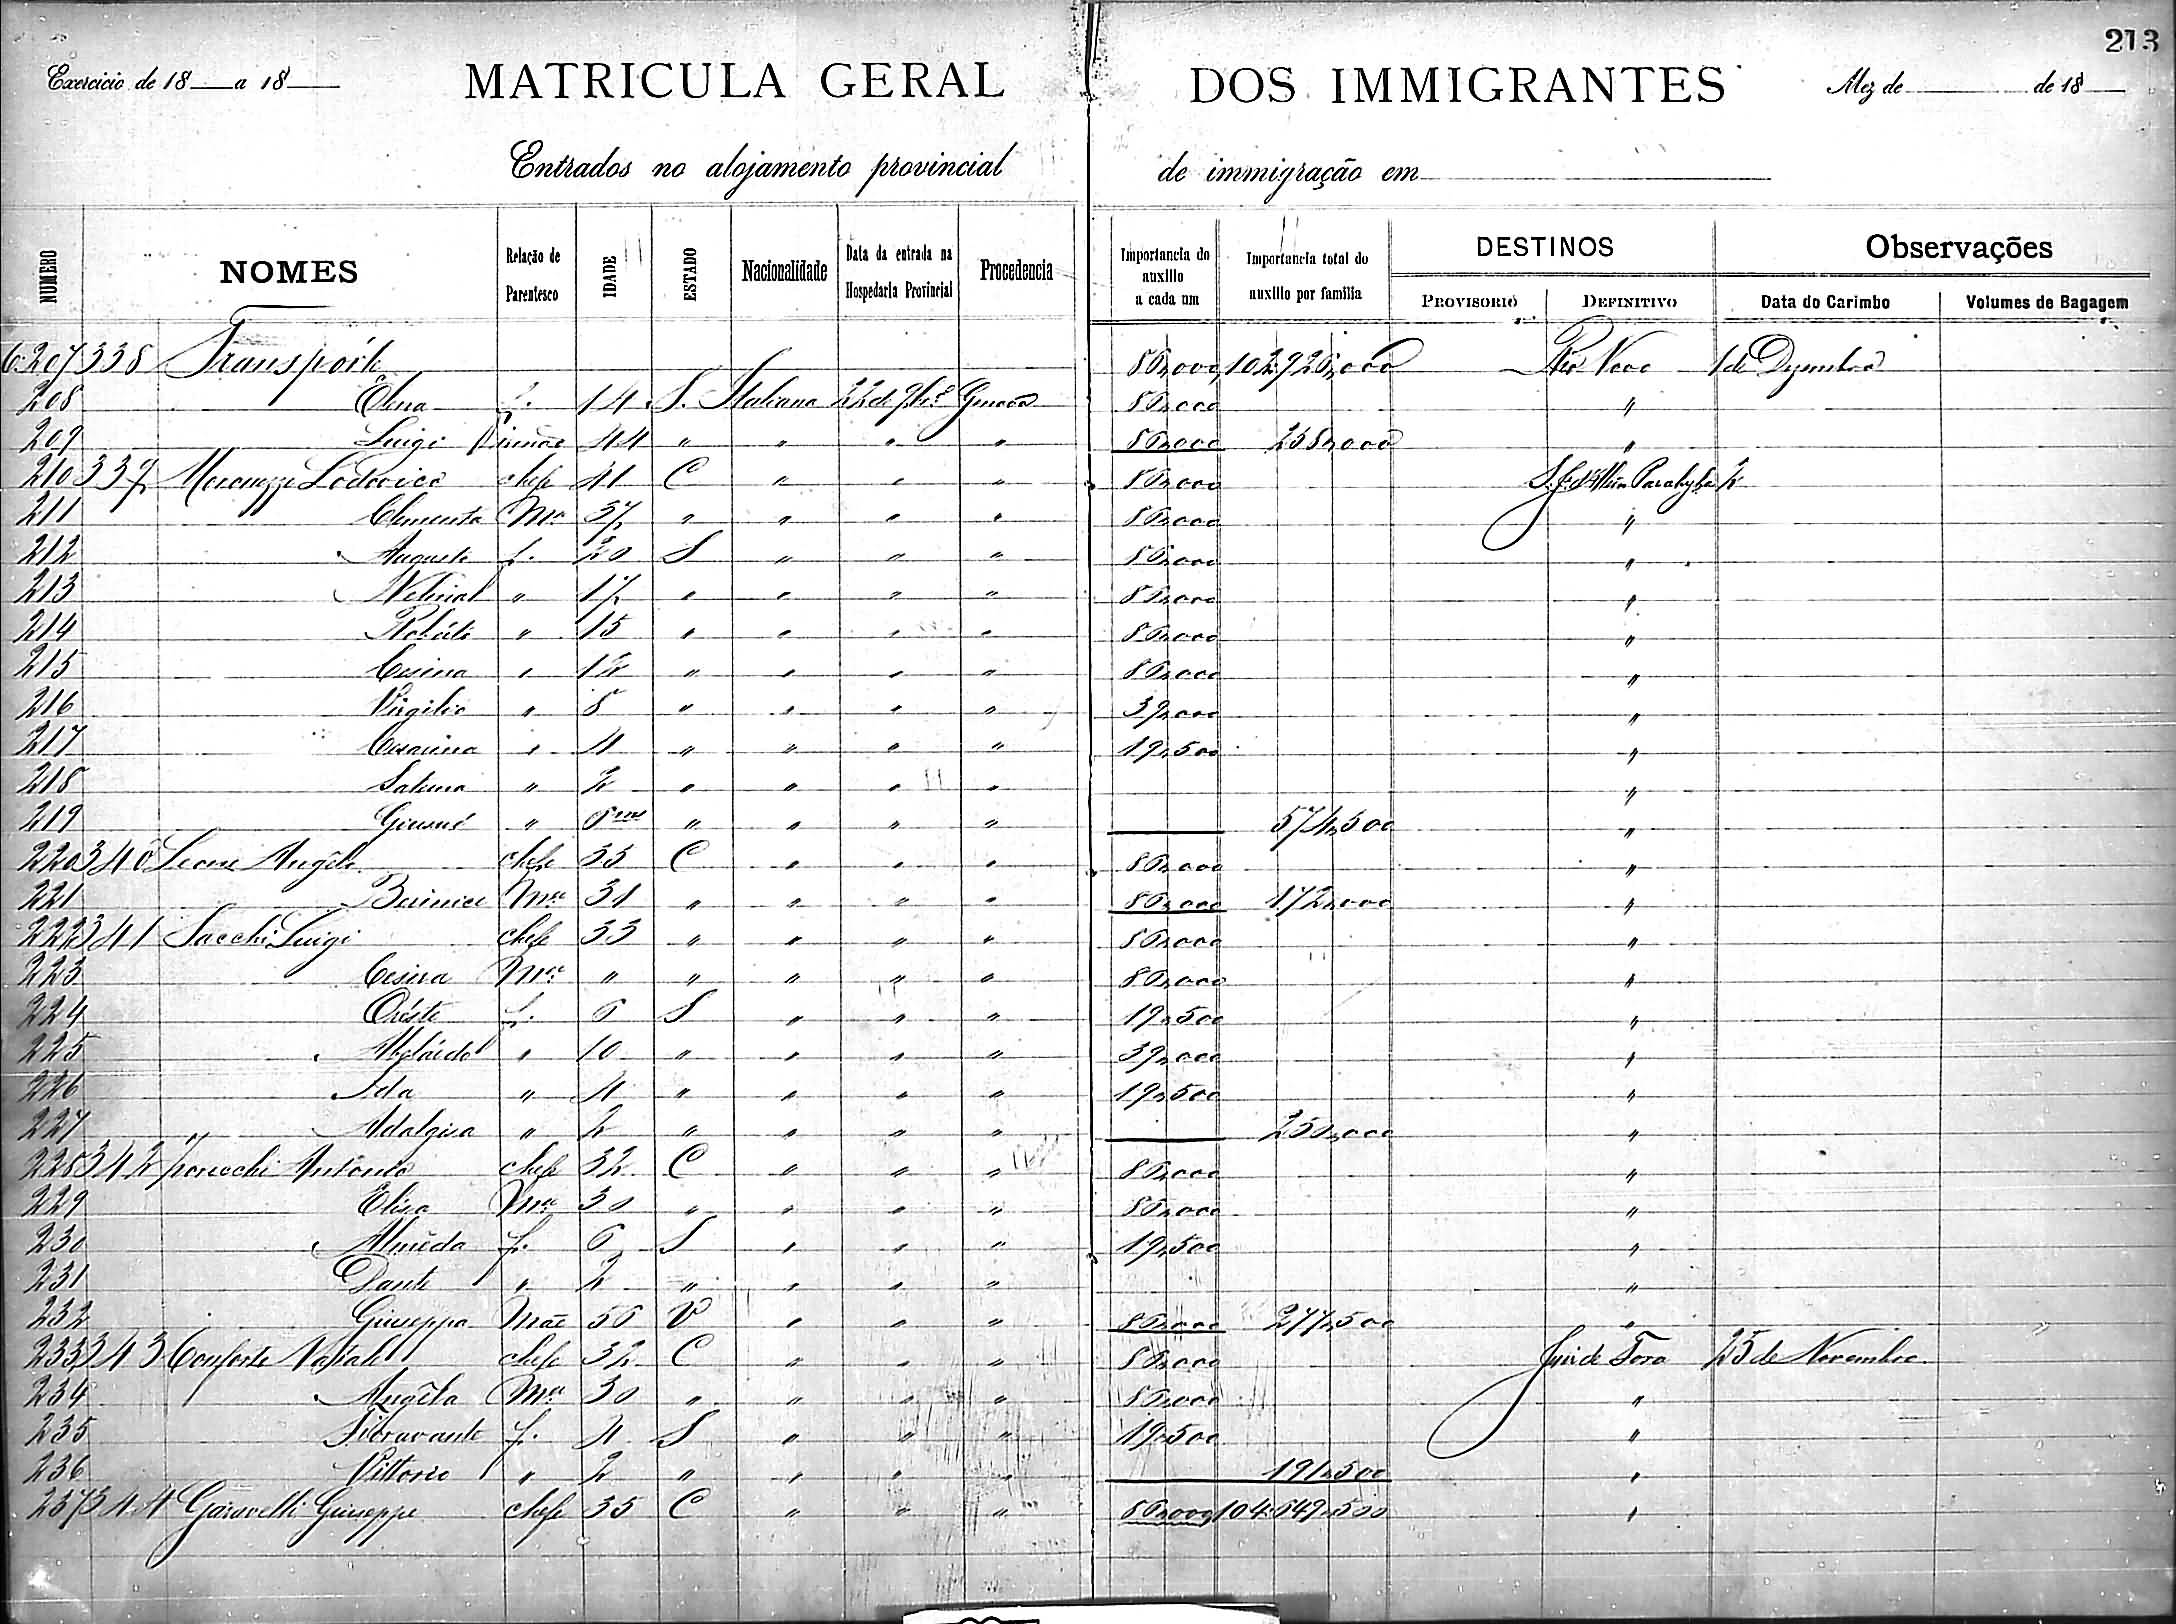 213
Exercicio de 18 a 18 MATRICULA GERAL DOS IMMIGRANTES Mez de de 18
Entrados no alojamento provincial de immigração em
NUMERO NOMES Relação de Parentesco IDADE ESTADO Nacionalidade Data da entrada na Hospedaria Provincial Procedencia Importancia do auxilio a cada um Importancia total do auxilio por familia DESTINOS PROVISORIO DEFINITIVO Observações Data do Carimbo Volumes de Bagagem
6.207 338 Transporte 86,000 102.926,000 Rio Novo 1 de Dezembro
208 Elena f. 14 S. Italiana 22 de 9br.º Genova 86,000 "
209 Luigi irmão 44 " " " " 86,000 258,000 "
210 339 Lodovico chefe 41 C " " " 86,000 Parahyba 2
211 Clementa Mer 37 " " " " 86,000 "
212 Augusto f. 20 S " " " 86,000 "
213 " 17 " " " " 86,000 "
214 " 15 " " " " 86,000 "
215 Cesina " 12 " " " " 86,000 "
216 Virgilio " 8 " " " " 39,000 "
217 Cesarina " 4 " " " " 19,500 "
218 " 2 " " " " "
219 " 6 mes " " " " 574,500 "
220 340 Leone Angelo chefe 35 C " " " 86,000 "
221 Mer 31 " " " " 86,000 172,000 "
222 341 Sacchi Luigi chefe 33 " " " " 86,000 "
223 Cesira Mer " " " " " 86,000 "
224 Oreste f. 6 S " " " 19,500 "
225 " 10 " " " " 39,000 "
226 Ida " 4 " " " " 19,500 "
227 Adalgisa " 2 " " " " 250,000 "
228 342 Antonio chefe 32 C " " " 86,000 "
229 Elisa Mer 30 " " " " 86,000 "
230 Almeda f. 6 S " " " 19,500 "
231 Dante " 2 " " " " "
232 Giuseppa Mãe 56 V " " " 86,000 277,500 "
233 343 Conforte Natale chefe 32 C " " " 86,000 Juiz de Fora 25 de Novembro
234 Angela Mer 30 " " " " 86,000 "
235 Fioravante f. 4 S " " " 19,500 "
236 Vittorio " 2 " " " " 191,500 "
237 344 Garavelli Giuseppe chefe 35 C " " " 86,000 104.649,500 "